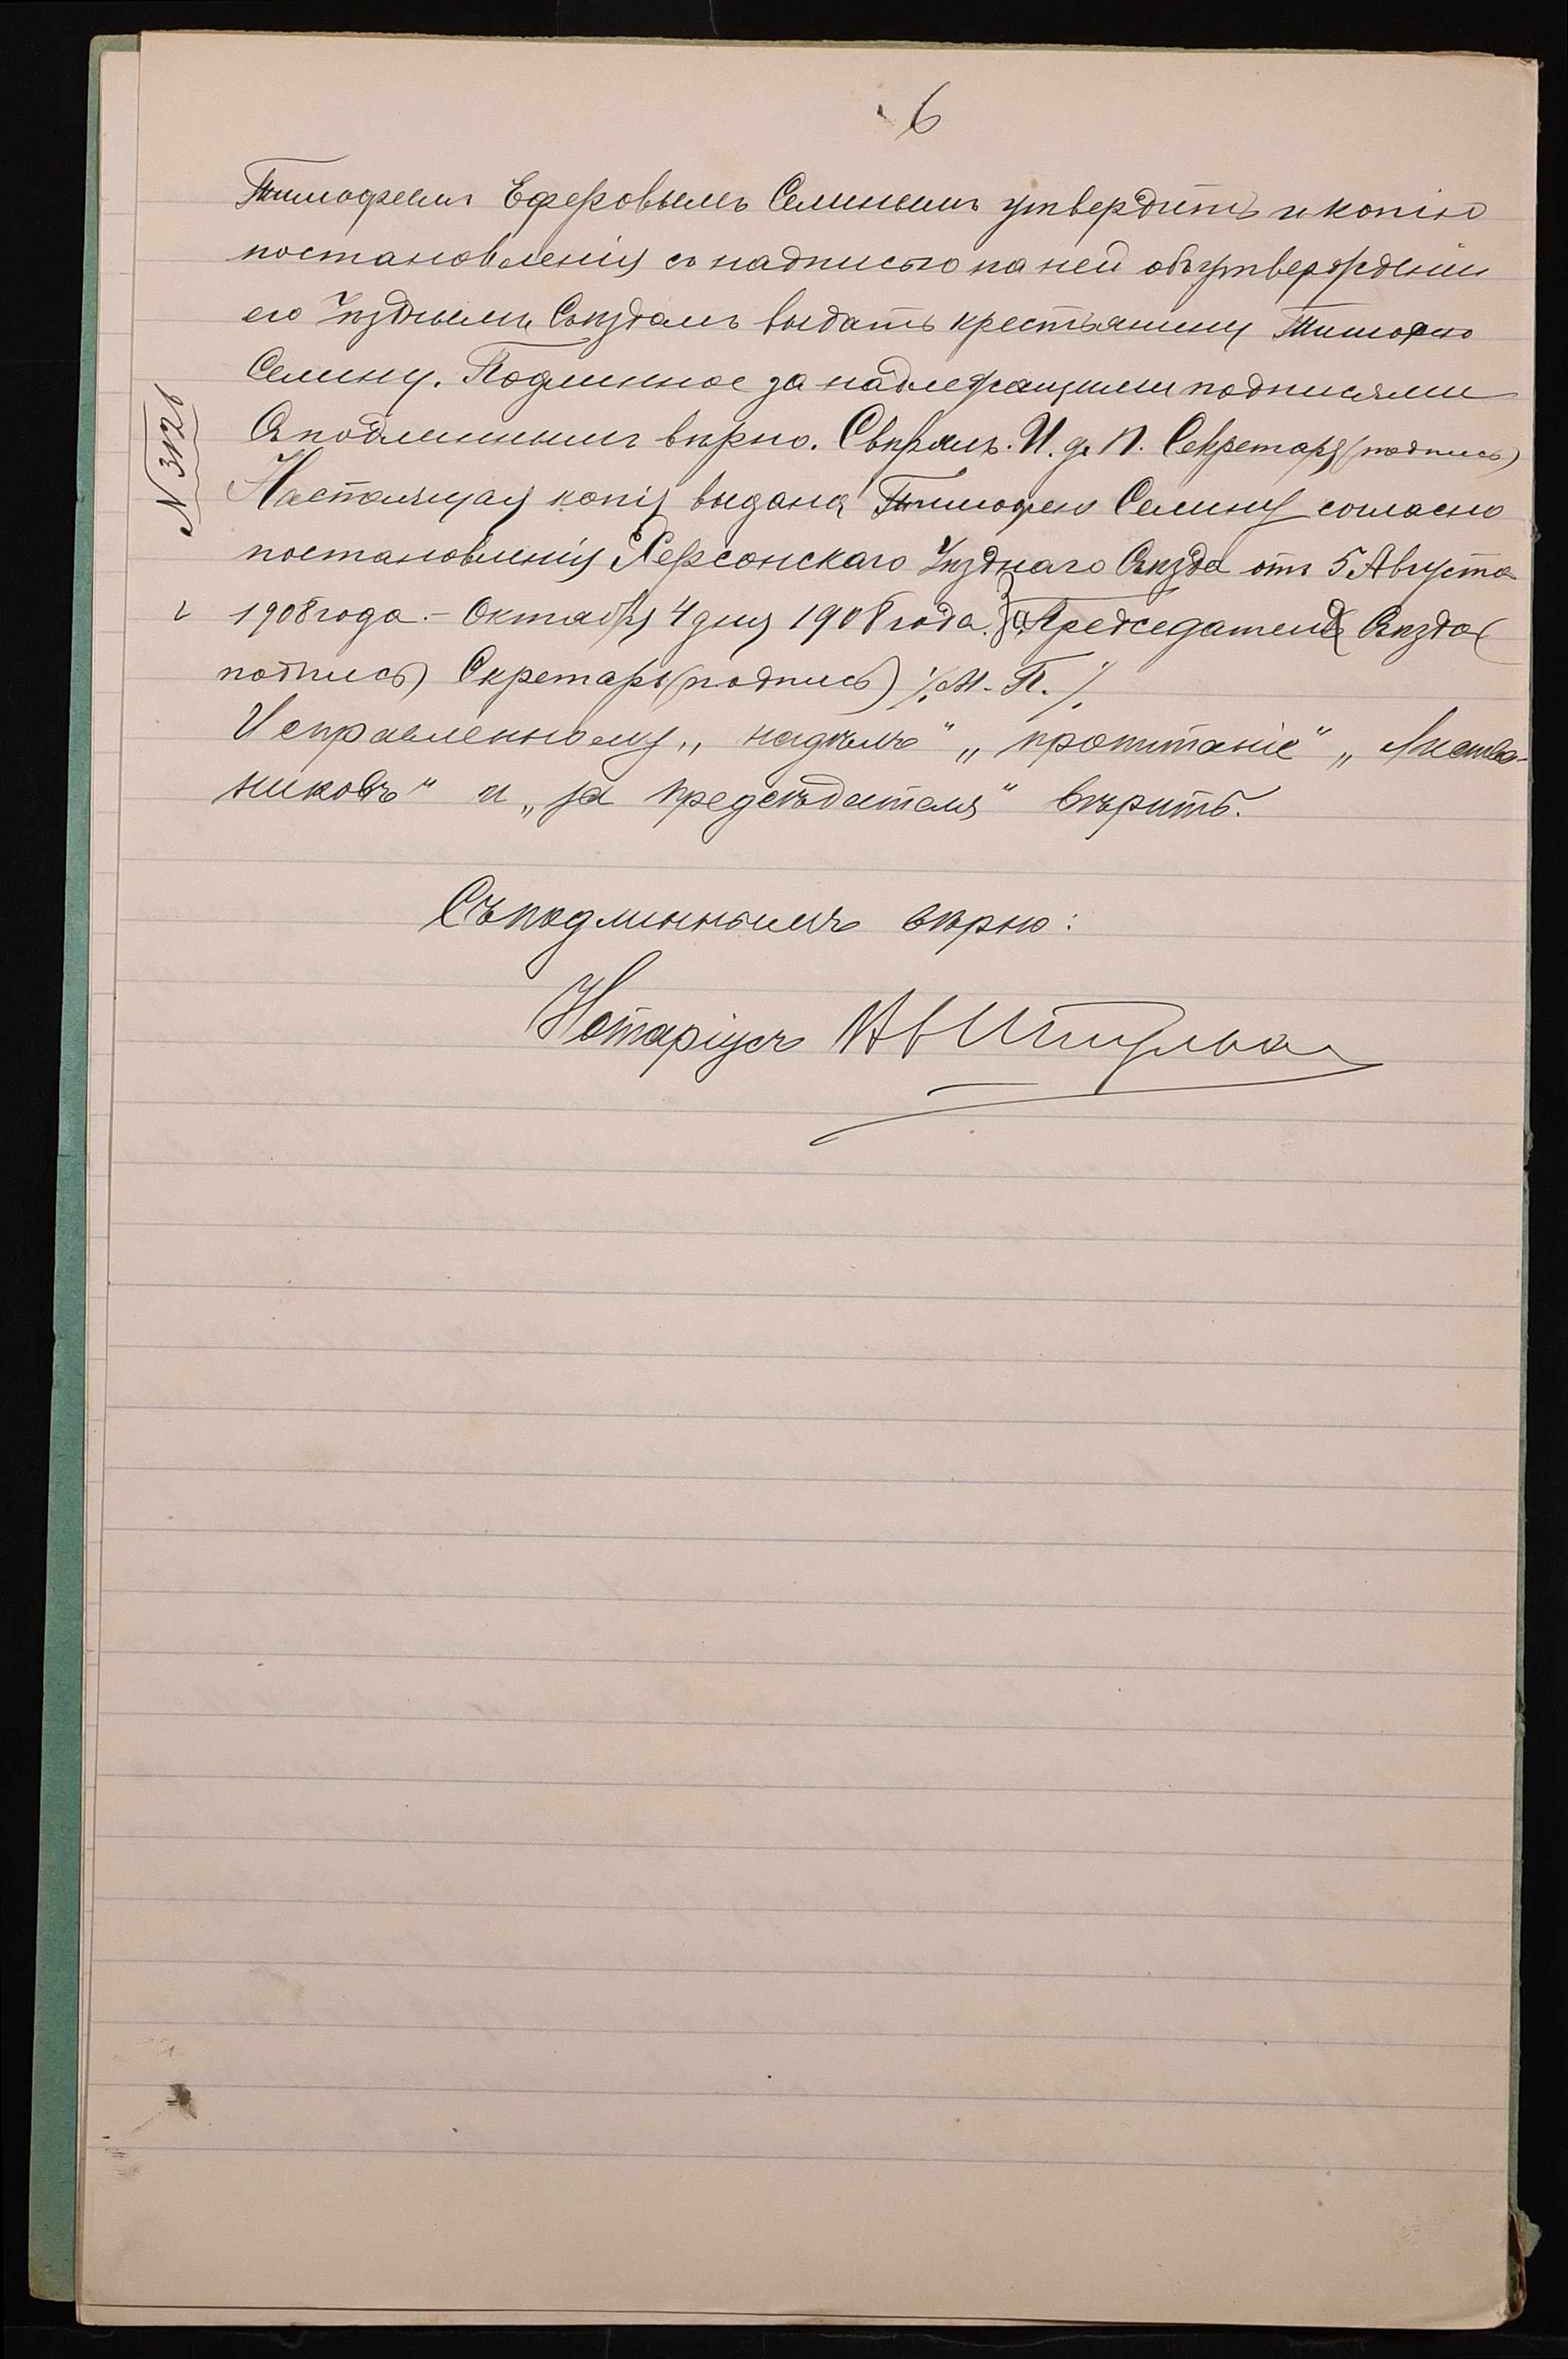 6
Тимофеемъ Еферовымъ Селинымъ утвердить и копію
постановленія съ надписью на ней объ утвержденіи
его Уѣзднымъ Съѣздомъ выдать крестьянину Тимофею
Селину. Подлинное за надлежащими подписями
Съ подлиннымъ вѣрно. Свѣрялъ. И. д. П. Секретаря (подпись)
N 3126
Настоящая копія выдана Тимофею Селину согласно
постановленія Херсонскаго Уѣзднаго Съѣзда отъ 5 Августа
1908 года. - Октября 4 дня 1908 года. За Председателя Съѣзда (
подпись) Скретарь (подпись) ./. М. П. ./.
Исправленному „надѣлъ" „пропитаніе"
никовъ" и „за предсѣдателя" вѣрить.
Съ подлиннымъ вѣрно:
Нотаріусъ